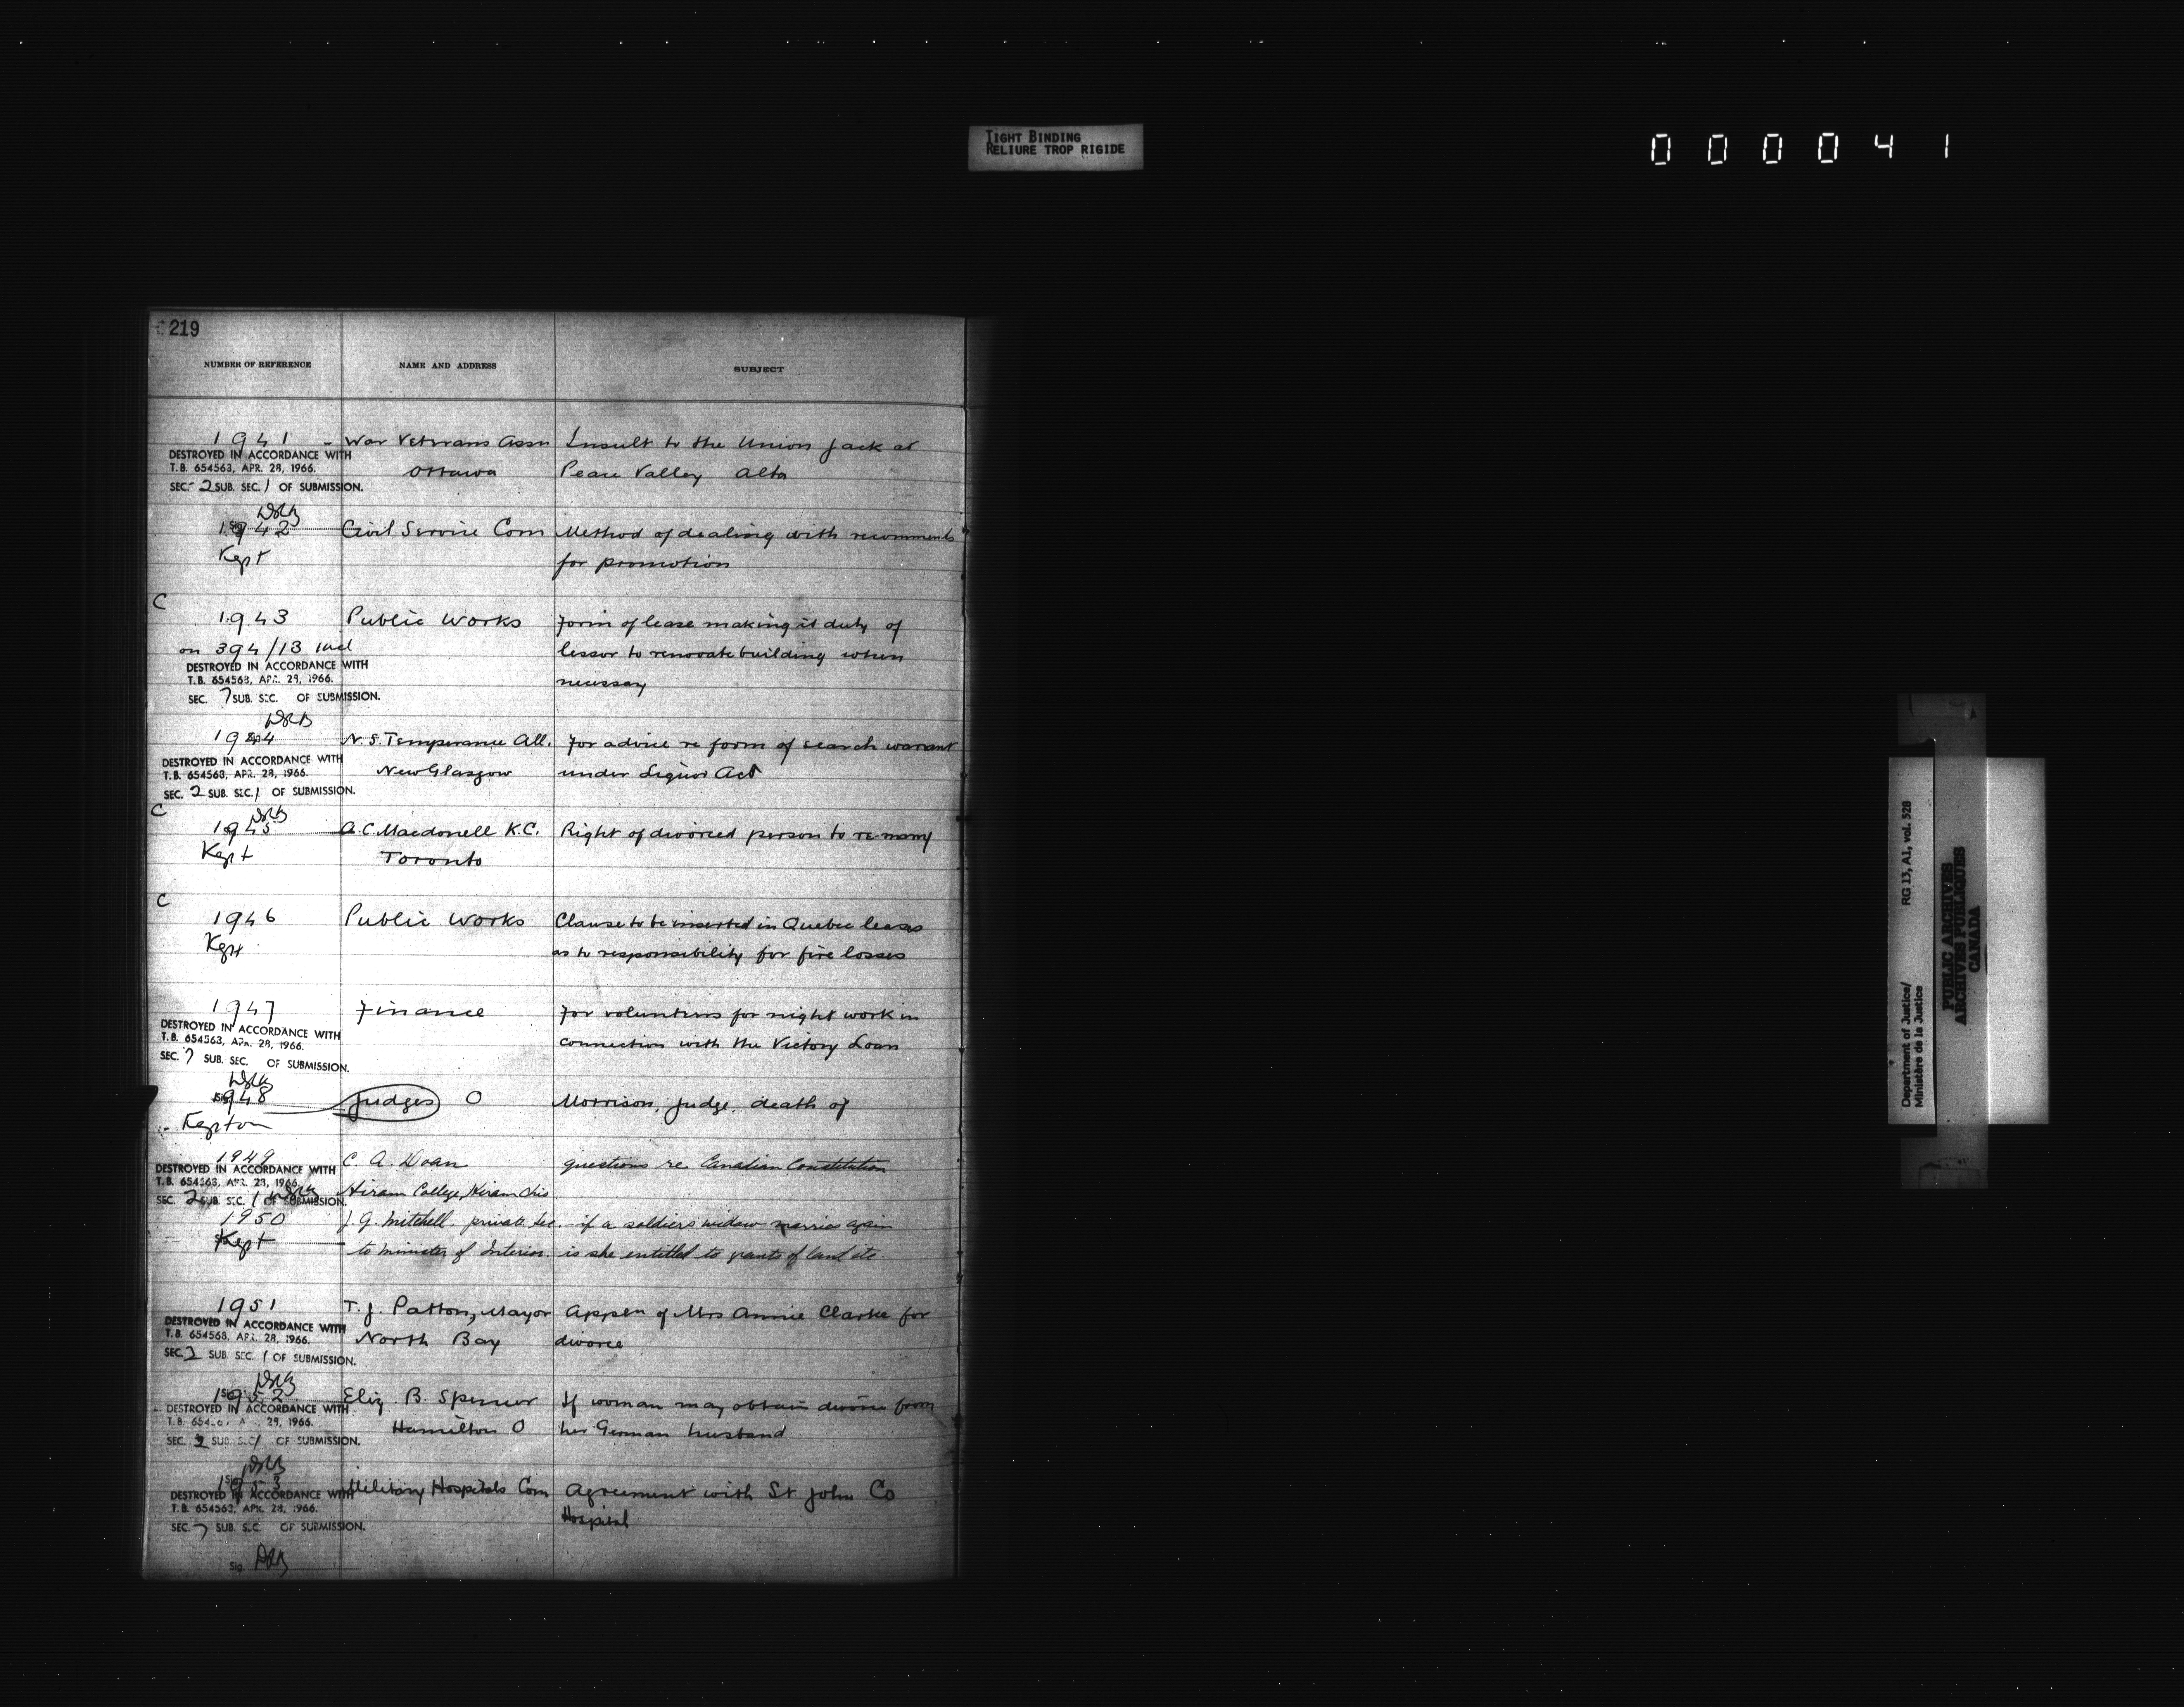 TIGHT BINDING
RELIURE TROP RIGIDE
0 0 0 0 4 1
219
NUMBER OF REFERENCE NAME AND ADDRESS SUBJECT
1941 - War Veterans Assn Insult to the Union Jack at
DESTROYED IN ACCORDANCE WITH
T.B. 654563, APR. 28, 1966. Ottawa Peace Valley Alta
SEC. 2 SUB. SEC. 1 OF SUBMISSION.
1942 Civil Service Com Method of dealing with recommends
Kept for promotion
C
1943 Public Works Form of lease making it duty of
on 394/13 lessor to renovate building when
DESTROYED IN ACCORDANCE WITH
T.B. 654563, APR. 28, 1966. necessary
SEC. 7 SUB. SEC. OF SUBMISSION.
1944 N.S. Temperance All. For advice re form of search warrant
DESTROYED IN ACCORDANCE WITH
T.B. 654563, APR. 28, 1966. New Glasgow under Liquor Act
SEC. 2 SUB. SEC. 1 OF SUBMISSION.
C
1945 A.C. Macdonell K.C. Right of divorced person to re-marry
Kept Toronto
C
1946 Public Works Clause to be inserted in Quebec leases
Kept as to responsibility for fire losses
1947 Finance For volunteers for night work in
DESTROYED IN ACCORDANCE WITH
T.B. 654563, APR. 28, 1966. connection with the Victory Loan
SEC. 7 SUB. SEC. OF SUBMISSION.
1948 Judges O Morrison, Judge, death of
Kept on
1949 C. A. Doan questions re Canadian Constitution
DESTROYED IN ACCORDANCE WITH
T.B. 654563, APR. 28, 1966.
SEC. 2 SUB. SEC. 1 OF SUBMISSION. Hiram College, Hiram Ohio
1950 J. G. Mitchell private Sec. if a soldiers widow marries again
Kept to Minister of Interior. is she entitled to grants of land etc.
1951 T. J. Patton, Mayor Appln of Mrs Annie Clarke for
DESTROYED IN ACCORDANCE WITH
T.B. 654563, APR. 28, 1966. North Bay divorce
SEC. 2 SUB. SEC. 1 OF SUBMISSION.
1952 Eliz. B. Spencer If woman may obtain divorce from
DESTROYED IN ACCORDANCE WITH
APR. 28, 1966. Hamilton O her German husband
SEC. 2 SUB. SEC. 1 OF SUBMISSION.
1953 Military Hospitals Com Agreement with St John Co
DESTROYED IN ACCORDANCE WITH
T.B. 654563, APR. 28, 1966. Hospital
SEC. 7 SUB. SEC. OF SUBMISSION.
Sig.
Department of Justice/ RG 13, A1, vol. 528
Ministère de la Justice
PUBLIC ARCHIVES
ARCHIVES PUBLIQUES
CANADA